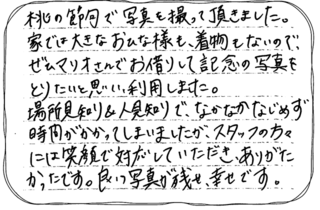 桃の節句で写真を撮って頂きました。
家では大きなおひな様も、着物もないので、
ゼムマリオさんでお借りして記念の写真を
とりたいと思い、利用しました。
場所見知り&人見知りで、なかなかなじめず
時間がかかってしまいましたが、スタッフの方々
には笑顔で対応していただき、ありがた
かったです。良い写真が残せ、幸せです。